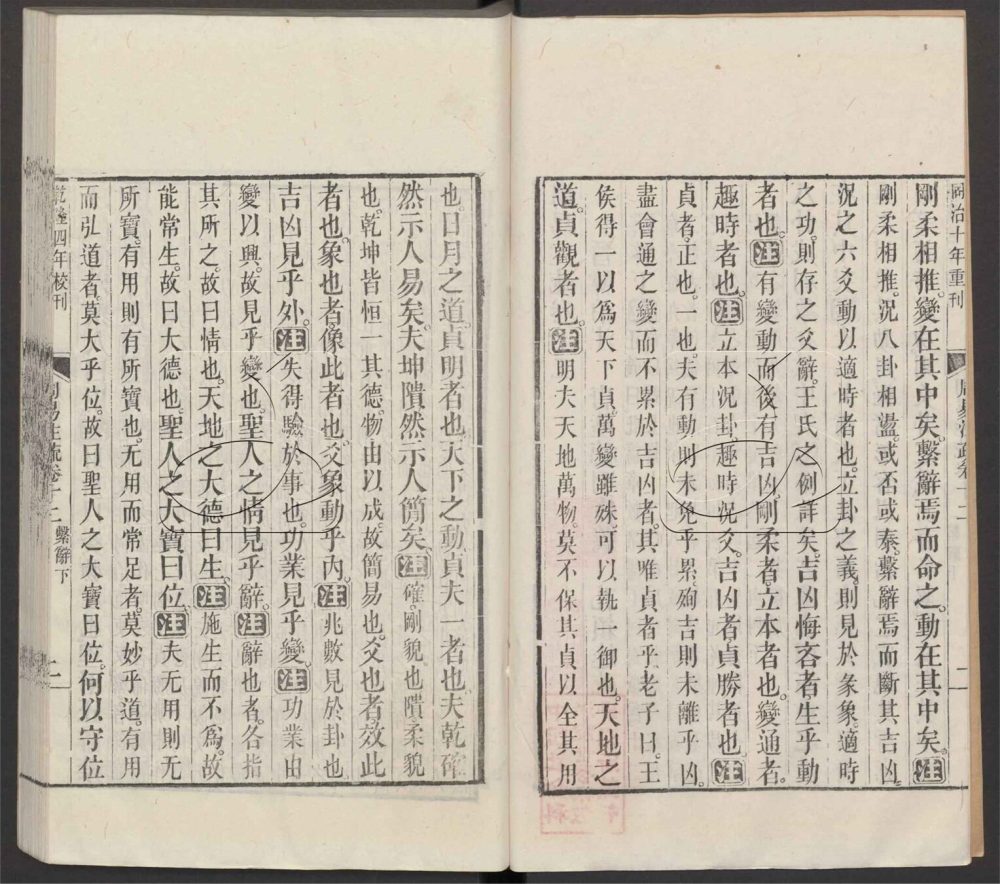 同治十年重刊
周易注疏卷十二
二
剛柔相推。變在其中矣。繫辭焉而命之。動在其中矣。注
剛柔相推。況八卦相盪。或否或泰。繫辭焉而斷其吉凶
況之六爻動以適時者也。立卦之義。則見於彖象。適時
之功。則存之爻辭。王氏之例詳矣。吉凶悔吝者生乎動
者也。注有變動而後有吉凶。剛柔者立本者也。變通者。
趣時者也。注立本況卦。趣時況爻。吉凶者貞勝者也。注
貞者。正也。一也。夫有動則未免乎累。殉吉則未離乎凶。
盡會通之變而不累於吉凶者。其唯貞者乎。老子曰。王
侯得一以爲天下貞。萬變雖殊。可以執一御也。天地之
道。貞觀者也。注明夫天地萬物。莫不保其貞以全其用
也。日月之道。貞明者也。天下之動。貞夫一者也。夫乾確
然示人易矣。夫坤隤然示人簡矣。注確。剛貌也。隤。柔貌
也。乾坤皆恒一其德。物由以成。故簡易也。爻也者效此
者也。象也者。像此者也。爻象動乎內。注兆數見於卦也
吉凶見乎外。注失得驗於事也。功業見乎變。注功業由
變以興。故見乎變也。聖人之情見乎辭。注辭也者。各指
其所之。故曰情也。天地之大德曰生。注施生而不爲。故
能常生。故曰大德也。聖人之大寶曰位。注夫无用則无
所寶。有用則有所寶也。无用而常足者。莫妙乎道。有用
而弘道者。莫大乎位。故曰聖人之大寶曰位。何以守位
乾隆四年校刊
周易注疏卷十二 繫辭下
二